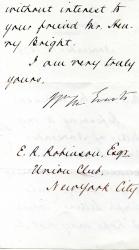 without interest to
your friend Mr. Hen-
ry Bright.
I am very truly
yours.
Wm M. Evarts
E. R. Robinson, Esqr.
Union Club,
New York City